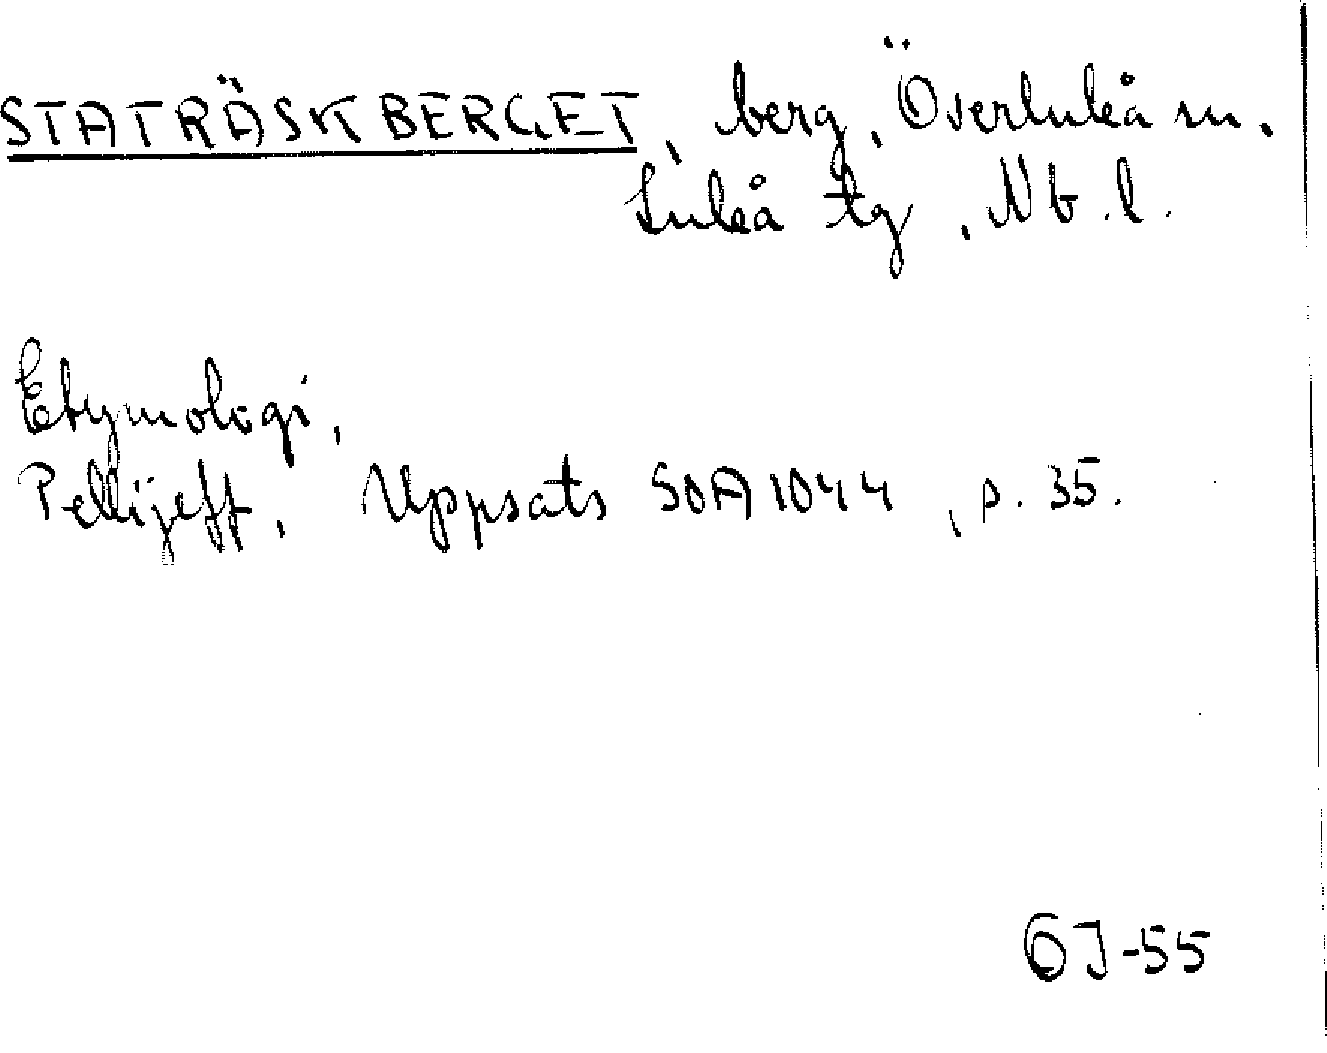 STATRÄSKBERGET, berg, Överluleå sn.
Luleå tg, Nb. l.
Etymologi,
Pellijeff, Uppsats SOA 1044, s. 35.
ÖJ-55